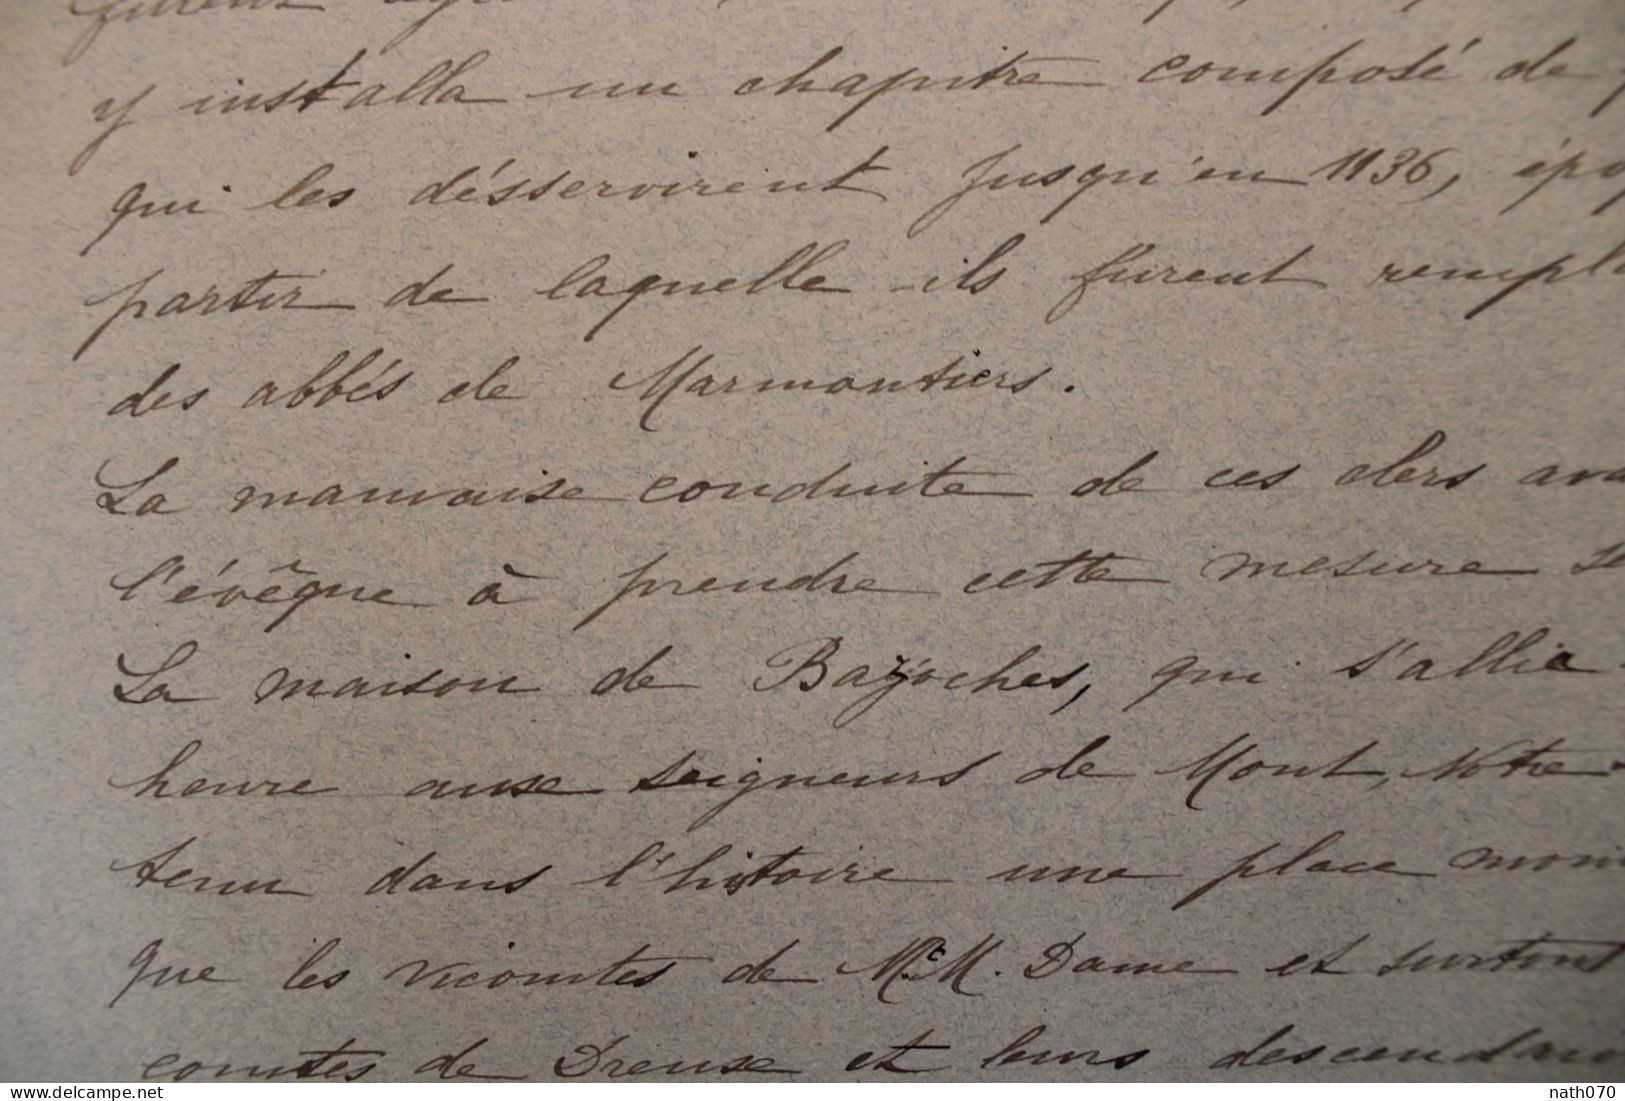 furent
y installa un chapitre composé de
qui les désservirent jusqu'en 1136,
partir de laquelle ils furent
des abbés de Marmontiers.
La mauvaise conduite de ces clers
l'évêque à prendre cette mesure
La maison de Bazoches, qui s'allia
heure aux seigneurs de Mont, Notre-
tenu dans l'histoire une place
que les vicomtes de Dame et surtout
comtes de Dreux et leurs
delcampe.net
nath070